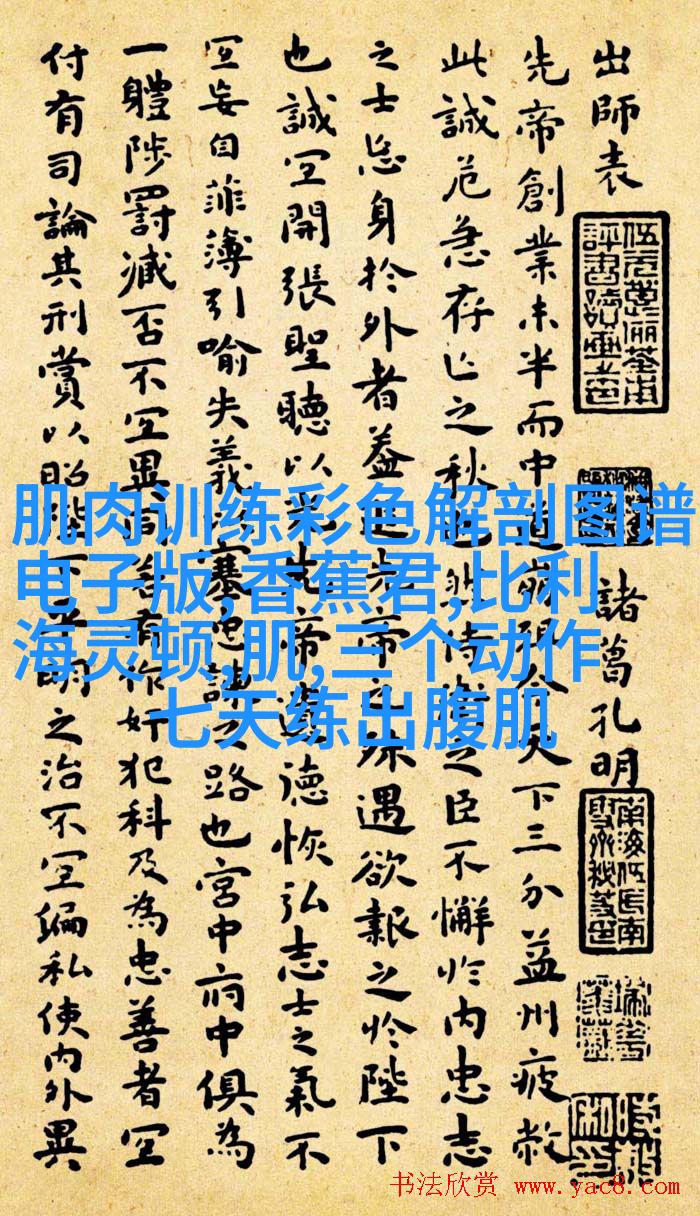 出師表
諸葛孔明
先帝創業未半而中道崩殂今天下三分益州疲敝
此誠危急存亡之秋也然侍衛之臣不懈於内忠志
之士忘身於外者蓋追先帝之殊遇欲報之於陛下
也誠宜開張聖聽以光先帝遺德恢弘志士之氣不
宜妄自菲薄引喻失義以塞忠諫之路也宮中府中俱為
一體陟罰臧否不宜異同若有作奸犯科及為忠善者宜
付有司論其刑賞以昭陛下平明之治不宜偏私使内外異
肌肉训练彩色解剖图谱
电子版,香蕉君,比利
海灵顿,肌,三个动作
七天练出腹肌
书法欣赏 www.yac8.com